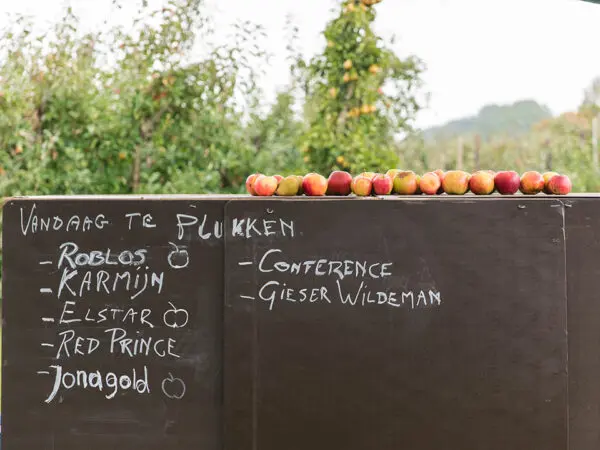 VANDAAG TE PLUKKEN
- ROBLOS
- KARMIJN
- ELSTAR
- RED PRINCE
- Jonagold
- CONFERENCE
- GIESER WILDEMAN